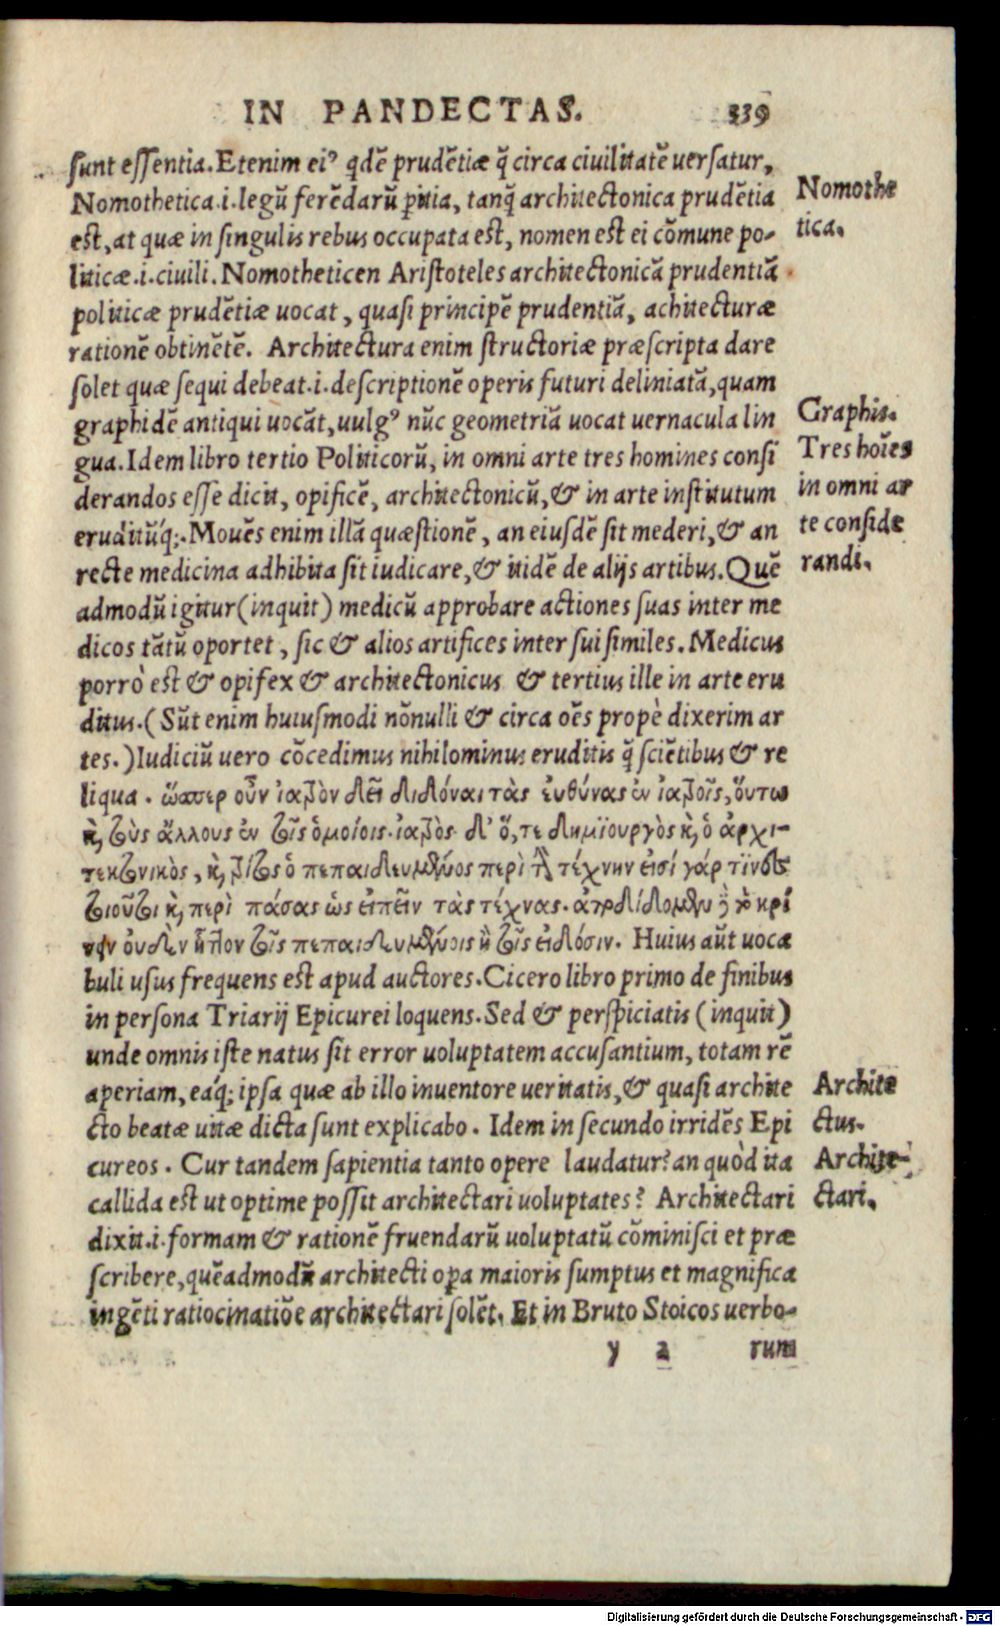 IN PANDECTAS. 339
sunt essentia. Etenim ei⁹ qdẽ prudẽtiæ q̃ circa ciuilitatẽ uersatur,
Nomothetica .i. legũ ferẽdarũ ꝑitia, tanq̃ architectonica prudẽtia
est, at quæ in singulis rebus occupata est, nomen est ei cõmune po-
liticæ .i. ciuili. Nomotheticen Aristoteles architectonicã prudentiã
politicæ prudẽtiæ uocat, quasi principẽ prudentiã, achitecturæ
rationẽ obtinẽtẽ. Architectura enim structoriæ præscripta dare
solet quæ sequi debeat .i. descriptionẽ operis futuri deliniatã, quam
graphidẽ antiqui uocãt, uulg⁹ nũc geometriã uocat uernacula lin
gua. Idem libro tertio Politicorũ, in omni arte tres homines consi
derandos esse dicit, opificẽ, architectonicũ, & in arte institutum
eruditũq́;. Mouẽs enim illã quæstionẽ, an eiusdẽ sit mederi, & an
recte medicina adhibita sit iudicare, & itidẽ de alijs artibus. Quẽ
admodũ igitur (inquit) medicũ approbare actiones suas inter me
dicos tãtũ oportet, sic & alios artifices inter sui similes. Medicus
porrò est & opifex & architectonicus & tertius ille in arte eru
ditus. (Sũt enim huiusmodi nõnulli & circa oẽs propè dixerim ar
tes.) Iudiciũ uero cõcedimus nihilominus eruditis q̃ sciẽtibus & re
liqua. ὥσπερ οὖν ἰατρὸν δεῖ διδόναι τὰς ἐυθύνας ἐν ἰατροῖς, ὅυτω
κ̀, τοὺς ἄλλους ἐν τοῖς ὁμοίοις. ἰατρὸς δ' ὅ, τε δημϊουργὸς κ̀, ὁ ἀρχι-
τεκτονικὸς, κ̀, τρίτος ὁ πεπαιδευμένος περὶ τὴν τέχνην εἰσί γάρ τϊνες
τοιοῦτοι κ̀, περὶ πάσας ὡς εἰπεῖν τὰς τέχνας. ἀποδίδομεν δὲ τὸ κρί
νειν ὀυδὲν ἧττον τοῖς πεπαιδευμένοις ἢ τοῖς ειδόσιν. Huius aũt uoca
buli usus frequens est apud auctores. Cicero libro primo de finibus
in persona Triarij Epicurei loquens. Sed & perspiciatis (inquit)
unde omnis iste natus sit error uoluptatem accusantium, totam rẽ
aperiam, eáq́; ipsa quæ ab illo inuentore ueritatis, & quasi archite
cto beatæ uitæ dicta sunt explicabo. Idem in secundo irridẽs Epi
cureos. Cur tandem sapientia tanto opere laudatur? an quòd ita
callida est ut optime possit architectari uoluptates? Architectari
dixit .i. formam & rationẽ fruendarũ uoluptatũ cõminisci et præ
scribere, quẽadmodũ architecti oꝑa maioris sumptus et magnifica
ingẽti ratiocinatiõe architectari solẽt. Et in Bruto Stoicos uerbo-
y 2 rum
Nomothe
tica.
Graphis.
Tres hoĩes
in omni ar
te conside
randi.
Archite
ctus.
Archite-
ctari.
Digitalisierung gefördert durch die Deutsche Forschungsgemeinschaft - DFG